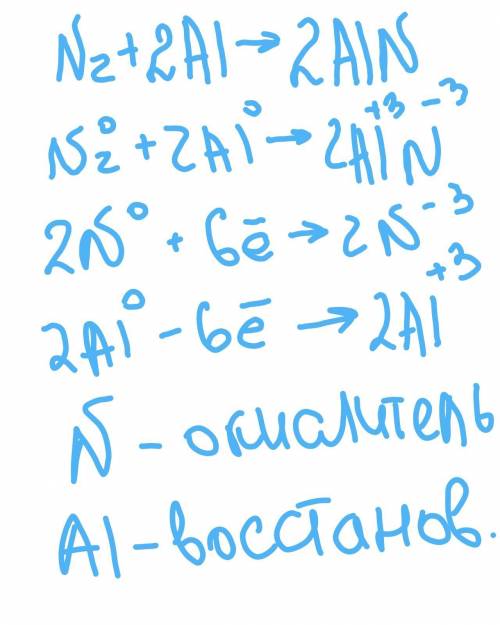 N₂+2Al→2AlN
N₂⁰+2Al⁰→2Al⁺³N⁻³
2N⁰+6ē→2N⁻³
2Al⁰-6ē→2Al⁺³
N-окислитель
Al-восстанов.